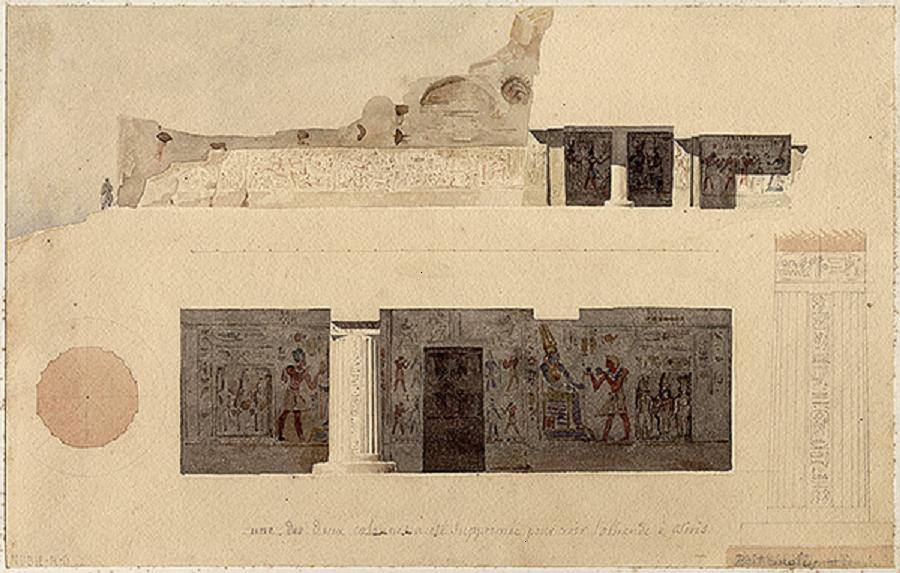 une des deux colonnes a été supprimée pour voir l'offrande à Osiris
NUBIE. N.O.